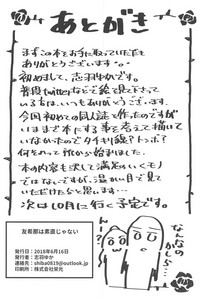 あとがき
まずこの本をお手に取っていただき
ありがとうございます…。
初めまして、志羽ゆかです。
普段twitterなどで絵を見て下さって
いる方は、いつもありがとうございます。
今回初めての同人誌を作ったのですが
いままで本にする事を考えて描いて
いなかったので タチキリ線?トンボ?
何それ…で 1から始まりました…
本の内容も決して満足のいくモノ
ではないですが、温かい目で見て
いただけたらと思います…。
次は10月に行く予定です。
友希那は素直じゃない
発行日:2018年6月16日
発行者:志羽ゆか
連絡先:shiba0819@outlook.jp
印刷所:株式会社栄光
なんなの
かしら…